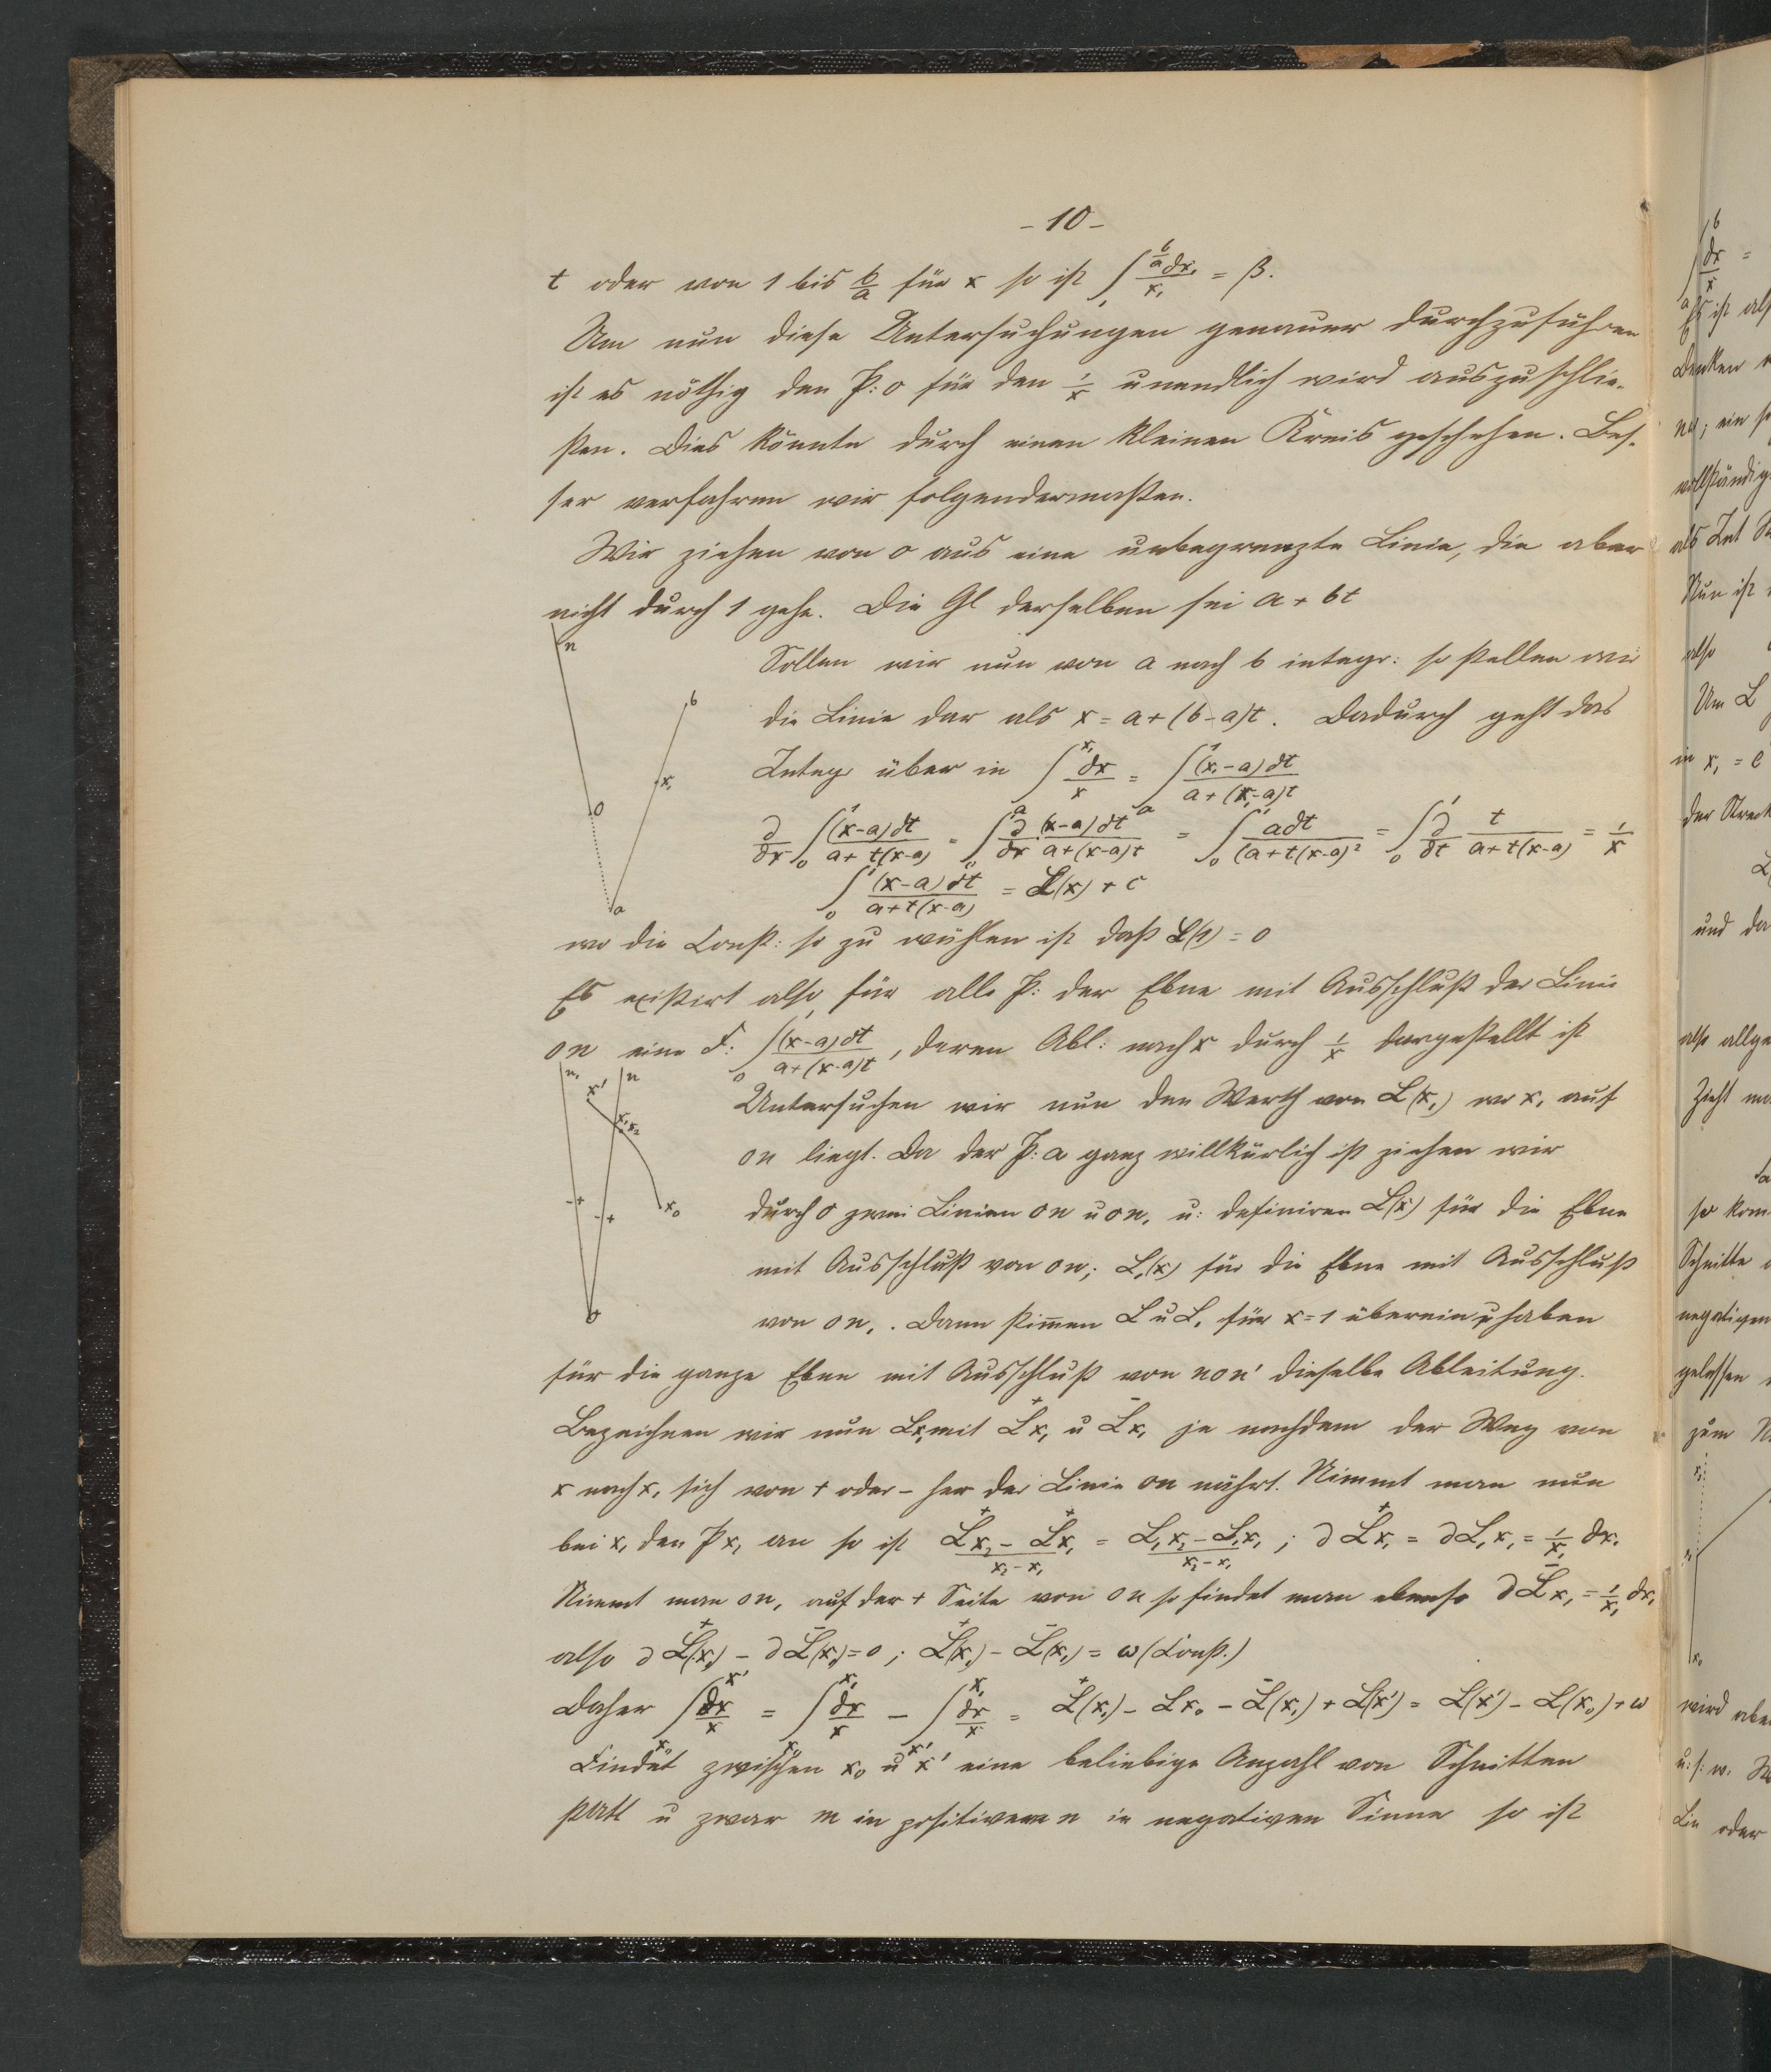 - 10 -
t oder von 1 bis b/a für x so ist ∫₁^{b/a} dx₁/x₁ = β.
Um nun diese Untersuchungen genauer durchzuführen
ist es nöthig den P: o für den 1/x unendlich wird auszuschlie-
ßen. Dies könnte durch einen kleinen Kreis geschehen. Bes-
ser verfahren wir folgendermaßen.
Wir ziehen von o aus eine unbegrenzte Linie, die aber
nicht durch 1 gehe. Die Gl derselben sei a + bt
Sollen wir nun von a nach b integr: so stellen wir
die Linie dar als x = a + (b-a)t. Dadurch geht das
Integ über in ∫ₐ^{x₁} dx/x = ∫ₐ^1 (x₁-a)dt / a+(x₁-a)t
∂/∂x ∫₀^1 (x-a)dt / a+t(x-a) = ∫₀^1 ∂/∂x (x-a)dt / a+(x-a)t = ∫₀^1 adt / (a+t(x-a)² = ∫₀^1 ∂/∂t t / a+t(x-a) = 1/x
∫₀^1 (x-a)dt / a+t(x-a) = L(x) + c
wo die Const: so zu wählen ist daß L(1) = 0
Es existirt also für alle P: der Ebne mit Ausschluß der Linie
on eine F: ∫₀^1 (x-a)dt / a+(x-a)t, deren Abl: nach x durch 1/x dargestellt ist
Untersuchen wir nun den Werth von L(x₁) wo x₁ auf
on liegt. Da der P: a ganz willkürlich ist ziehen wir
durch o zwei Linien on u on₁ u: definiren L(x) für die Ebne
mit Ausschluß von on; L₁(x) für die Ebne mit Ausschluß
von on₁. Dann stim̅en L u L₁ für x = 1 überein u haben
für die ganze Ebne mit Ausschluß von non' dieselbe Ableitung.
Bezeichnen wir nun Lx₁ mit L⁺x₁ u L⁻x₁ je nachdem der Weg von
x nach x₁ sich von + oder - her der Linie on nährt. Nimmt man nun
bei x₁ den P x₂ an so ist L⁺x₂ - L⁺x₁ / x₂-x₁ = L₁x₂ - L₁x₁ / x₂-x₁ ; ∂L⁺x₁ = ∂L₁x₁ = 1/x₁ dx₁
Nimmt man on₁ auf der + Seite von on so findet man ebenso ∂L⁻x₁ = 1/x₁ dx₁
also ∂L⁺(x₁) - ∂L⁻(x₁) = 0 ; L⁺(x₁) - L⁻(x₁) = ω (Const.)
Daher ∫_{x₀}^{x'} dx/x = ∫_{x₀}^{x₁} dx/x - ∫_{x'}^{x₁} dx/x = L⁺(x₁) - Lx₀ - L⁻(x₁) + L(x') = L(x') - L(x₀) + ω
Findet zwischen x₀ u x' eine beliebige Anzahl von Schnitten
statt u zwar m in positivem n in negativen Sinne so ist
n
b
x₁
o
a
n₁
x'
n
x₁ x₂
- +
- +
x₀
o